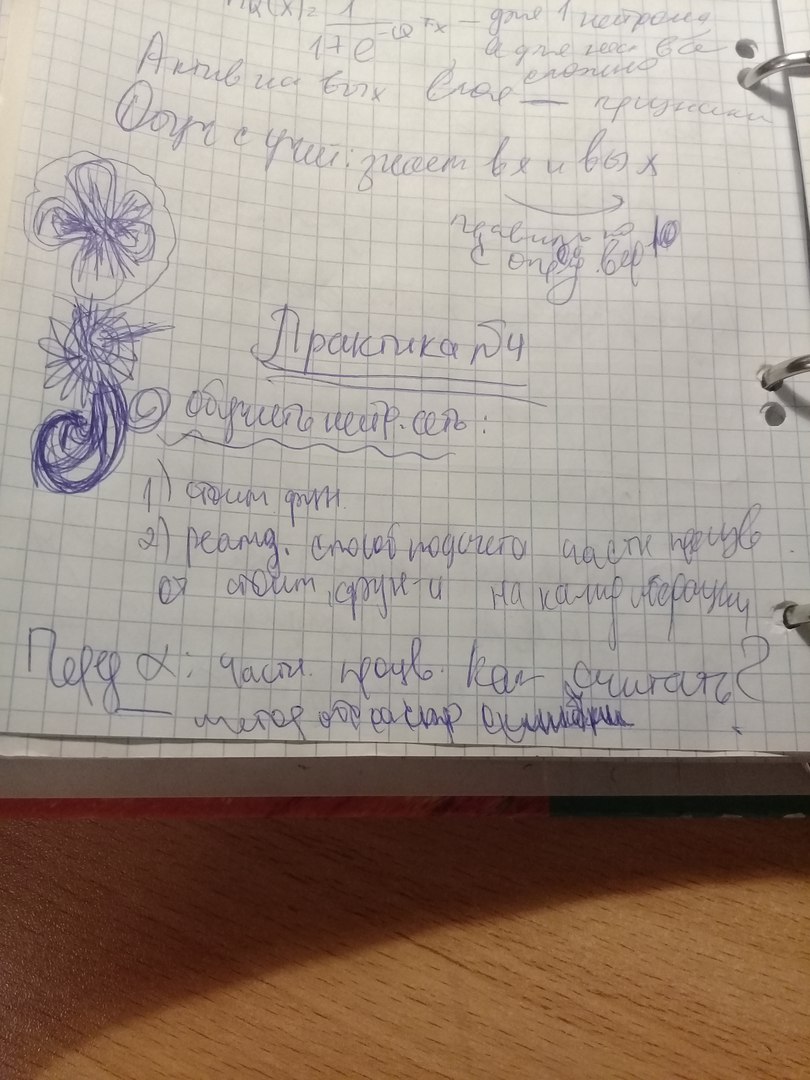 (x) = 1 / 1+e^-Q^Tx – для 1 нейрона,
а для нас все
сложно
Актив на вых слоя — признаки
Обуч с учит: знает вх и вых
с опред. вер-ю
Практика №4
обучить нейр. сеть:
1) стоим. фун.
2) реализ. способ подсчета частн произв
от стоим. функ-и на кажд итерации
Перед α: частн. произв. Как считать?
— метод обр распр ошибки